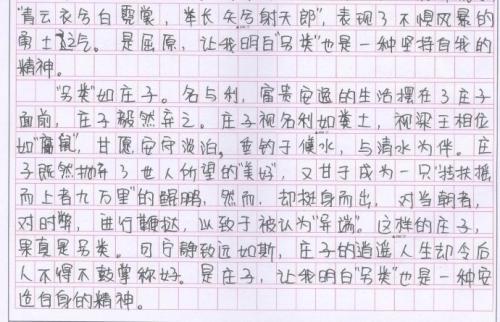 "青云衣兮白霓裳，举长矢兮射天郎"，表现了不惧风暴的
勇士之气。是屈原，让我明白"另类"也是一种坚持自我的
精神。
"另类"如庄子。名与利，富贵安逸的生活摆在了庄子
面前，庄子毅然弃之。庄子视名利如粪土，视梁王相位
如"腐鼠"，甘愿安守淡泊，垂钓于濮水，与清水为伴。庄
子既然抛弃了世人所望的"美好"，又甘于成为一只"抟扶摇
而上者九万里"的鲲鹏，然而，却挺身而出，对当朝者，
对时弊，进行鞭挞，以致于被认为"异端"。这样的庄子，
果真是另类。可宁静致远如斯，庄子的逍遥人生却令后
人不得不鼓掌称好。是庄子，让我明白"另类"也是一种安
适自身的精神。